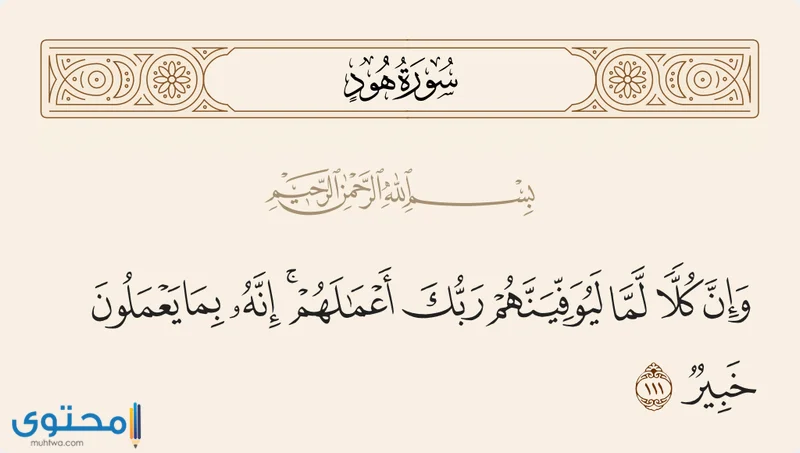 سُورَةُ هُودٍ
بِسْمِ اللَّهِ الرَّحْمَٰنِ الرَّحِيمِ
وَإِنَّ كُلًّا لَّمَّا لَيُوَفِّيَنَّهُمْ رَبُّكَ أَعْمَٰلَهُمْ ۚ إِنَّهُۥ بِمَا يَعْمَلُونَ
خَبِيرٌ ١١١
محتوى
muhtwa.com